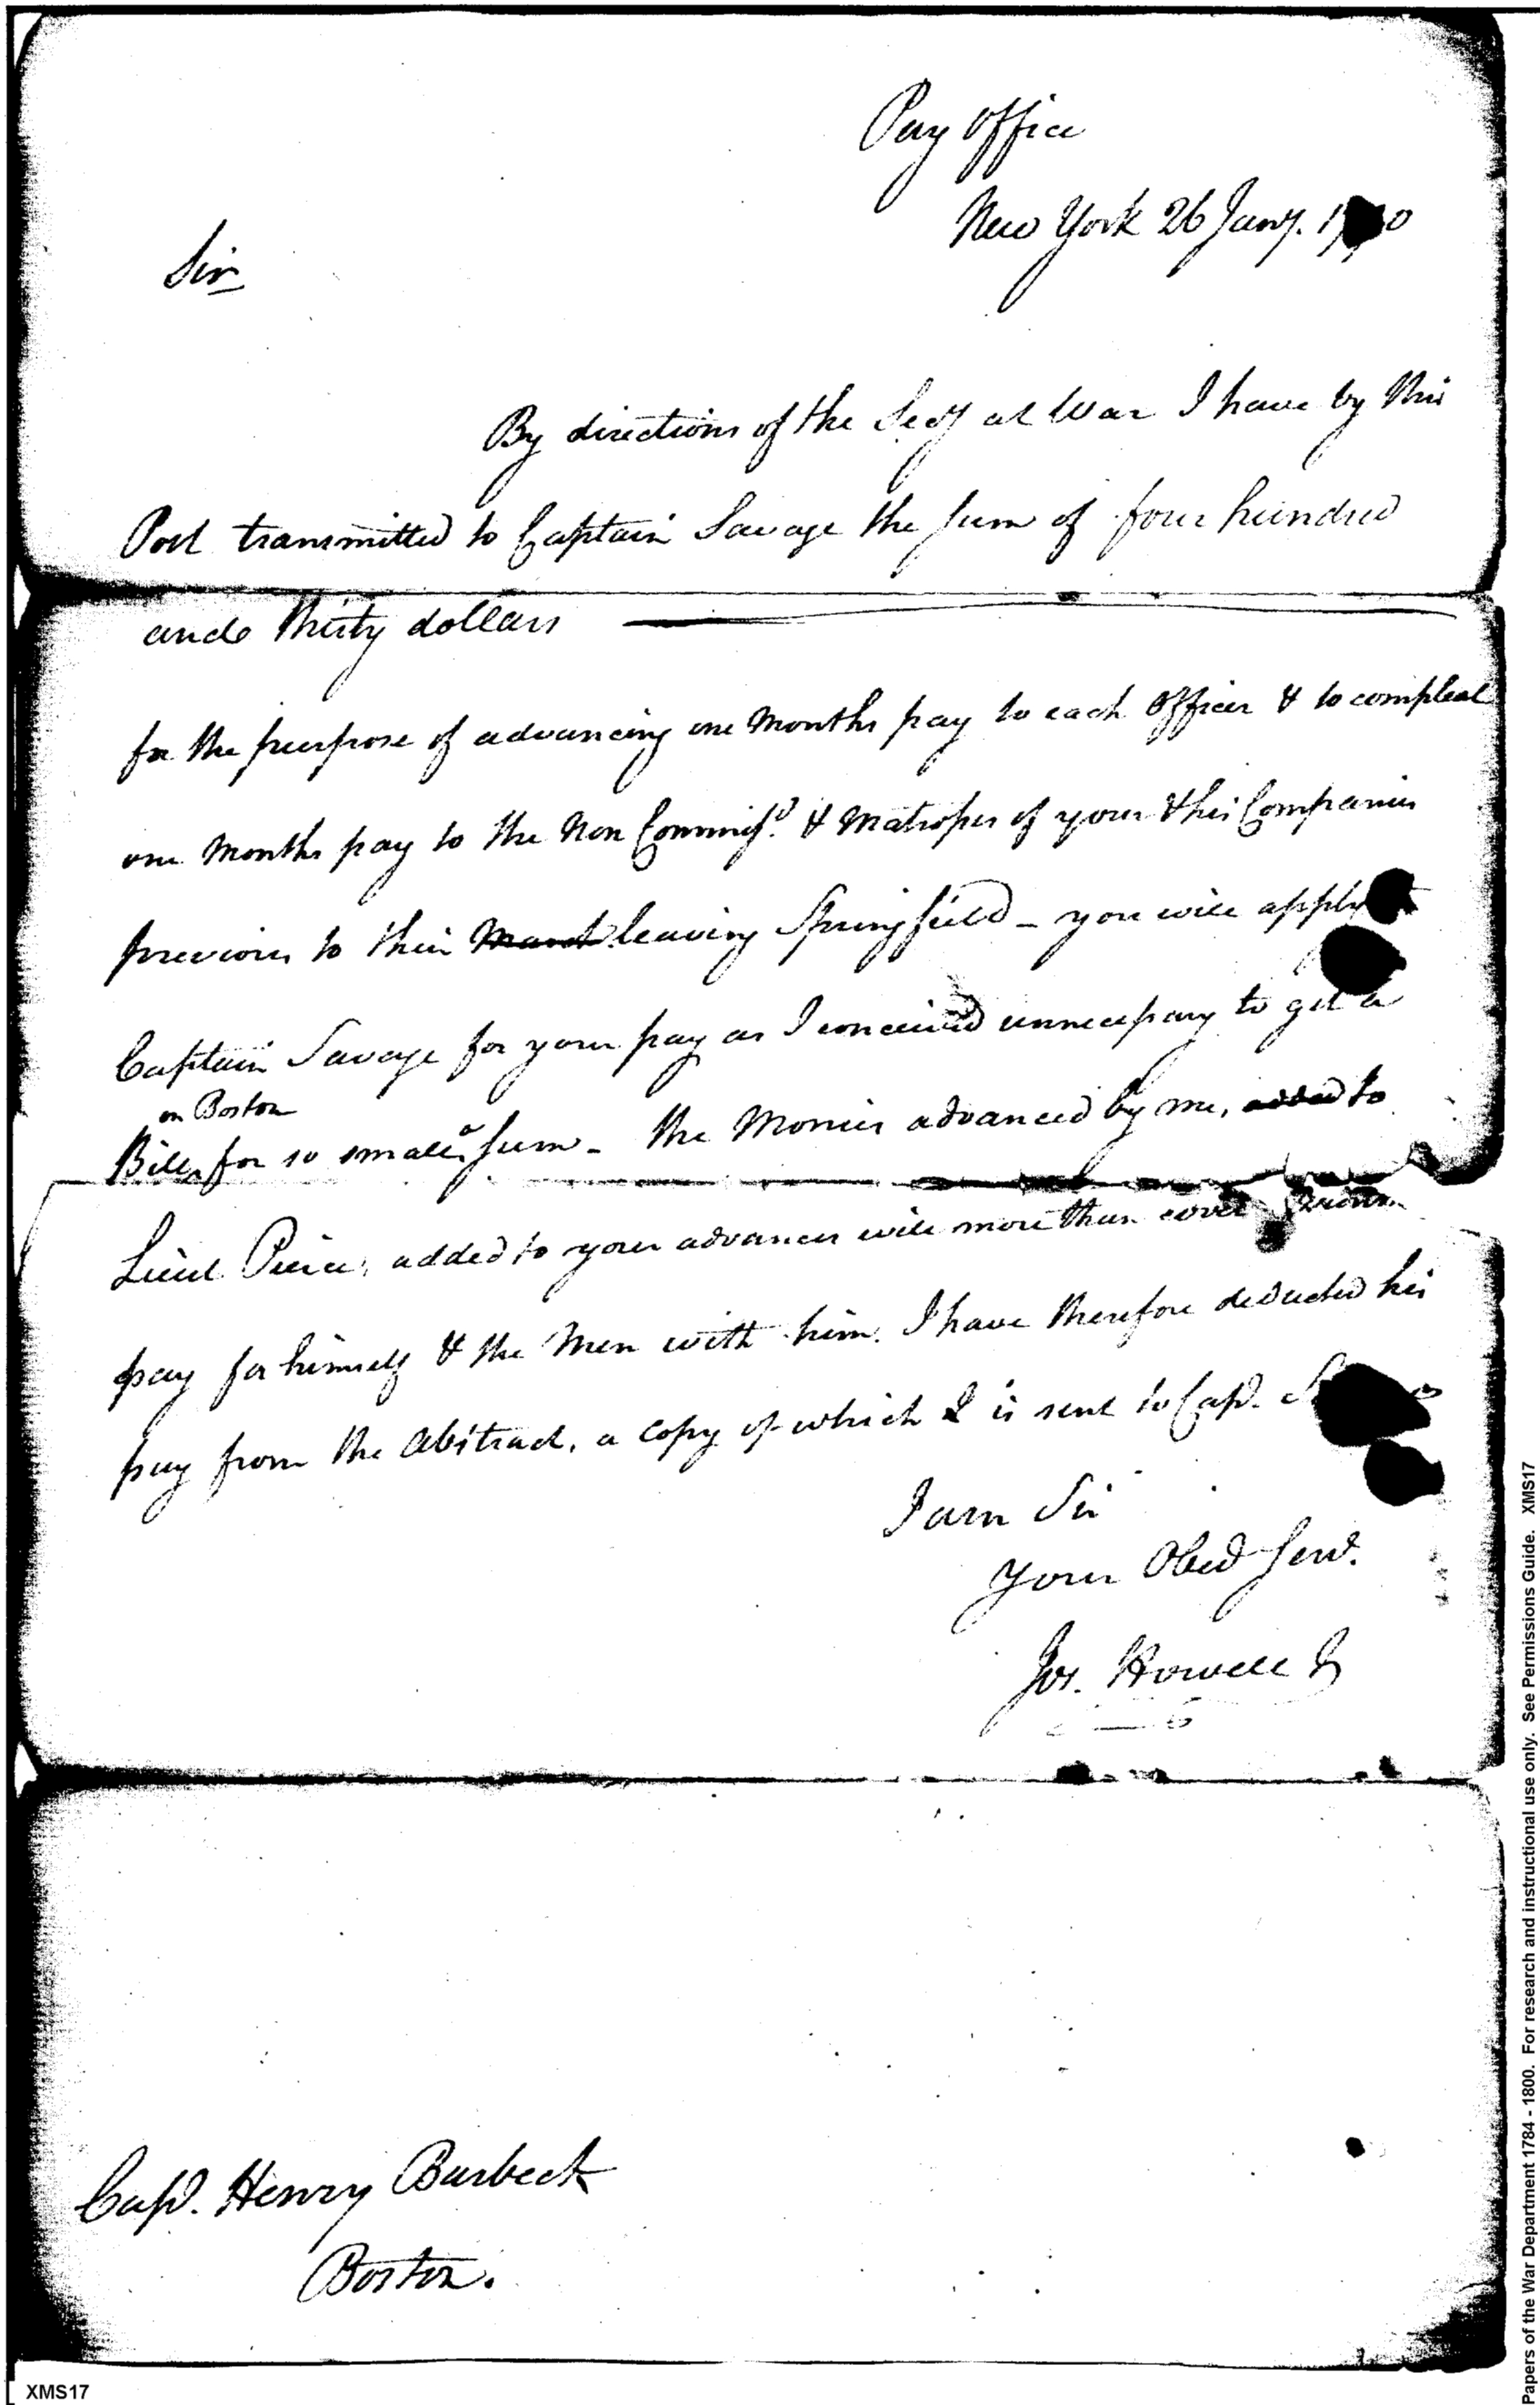 Pay Office
New York 26 Jany. 1790
Sir
By directions of the Secy at War I have by this
Post transmitted to Captain Savage the sum of four hundred
and thirty dollars
for the purpose of advancing one months pay to each Officer & to compleat
one months pay to the Non Commisd. & Matrosses of your & his Companies
previous to their leaving Springfield - you will apply
Captain Savage for your pay as I conceived unnecessary to get a
on Boston
Bill for so small a sum - the Monies advanced by me, to
Lieut Peirce, added to your advances will more than cover
pay for himself & the Men with him. I have therefore deducted his
pay from the Abstract, a copy of which is sent to Capt.
I am Sir
Your Obed Servt.
Jos. Howell Jr
Capt. Henry Burbeck
Boston.
XMS17
Papers of the War Department 1784 - 1800. For research and instructional use only. See Permissions Guide. XMS17